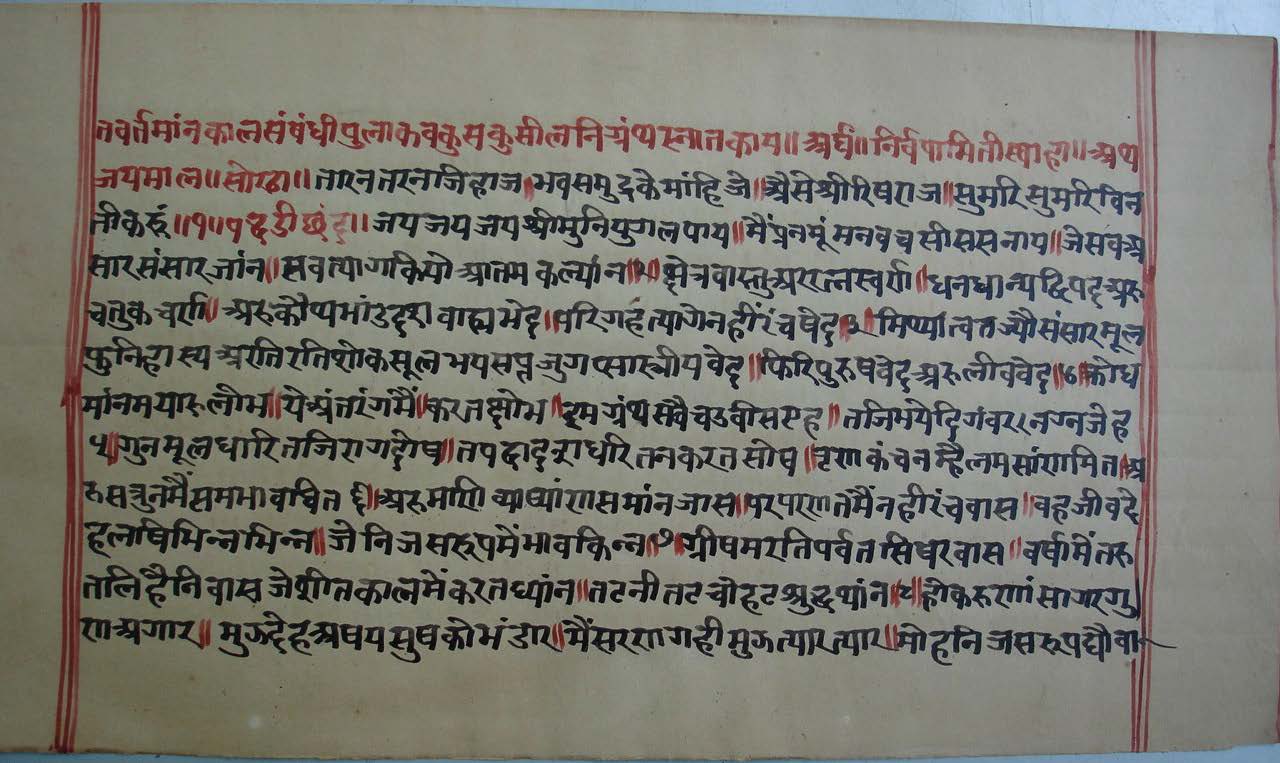 तवर्तमांनकालसंबंधीपुलाकवकुसकुसीलनिग्रंथस्नातकाय॥अर्घं॥निर्वपामितीस्वाहा॥अथ
जयमाल॥सोरठा॥तारनतरनजिहाज॥भवसमुद्रकेमांहिजे॥अैसेश्रीरिषराज॥सुमरिसुमरिविन
तीकरूं॥१॥पद्धडीछंद॥जयजयजयश्रीमुनियुगलपाय॥मैंप्रनमूंमनवचसीसनाय॥जेसबअ
सारसंसारजांन॥सबत्यागकियोआतमकल्यांन॥२॥क्षेत्रवास्तुअररत्नस्वर्ण॥धनधान्यद्विपदअरु
चतुकचर्ण॥अरुकौप्यभांडदशवाह्यभेद॥परिगहत्यागेनहींरंचषेद॥३॥मिथ्यात्वतज्यौसंसारमूल
फुनिहास्यअरतिरतिशोकसूलभयसप्तजुगप्सास्त्रीयवेद॥फिरिपुरुषवेदअरुक्लीववेद॥४॥क्रोध
र्मानमयारुलोभ॥येअंतरंगमैंकरतक्षोभ॥इमग्रंथसवैचउवीसएह॥तजिभयेदिगंवरनग्नजेह
५॥गुनमूलधारितजिरागदोष॥तपद्वादशधरितनकरतसोष॥तृणकंचनमहैलमसांणमित॥अ
रुसत्रुनमैंसमभावचित॥६॥अरुमाणिपाषांणसमांनजास॥परपरणतमैंनहीरंचवास॥वहजीवदे
हलषिभिन्नभिन्न॥जेनिजसरूपमैंभावकिन्न॥७॥ग्रीषमरतिपर्वतसिषरवास॥वर्षामेंतरु
तलिहैनिवासजेशीतकालमेंकरतध्यांन॥तटनीतटचोहटशुद्धथांन॥८॥होकरुणांसागरगु
णअगार॥मुऊदेहअषयसुषकोभंडार॥मैंसरणगहीमुऊत्यारत्यार॥मोहनिजसरूपद्यौवा